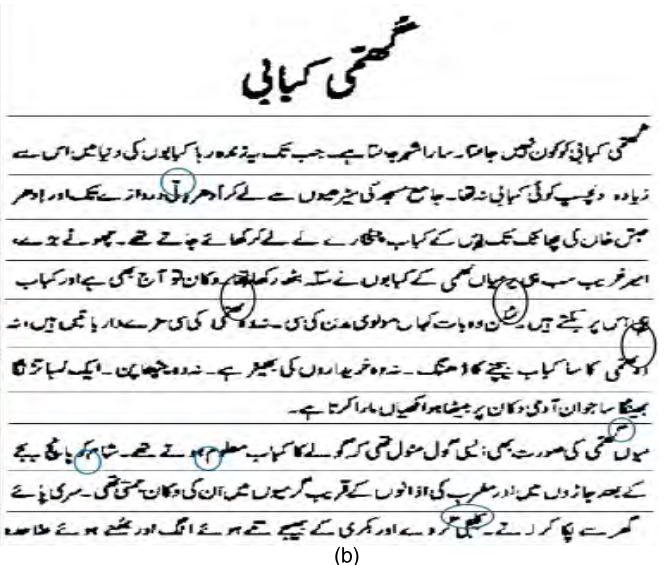 گھمی کبابی
گھمی کبابی کو کون نہیں جانتا۔ سارا شہر جانتا ہے۔ جب تک یہ زندہ رہا کبابوں کی دنیا میں اس سے
زیادہ دلچسپ کوئی کبابی نہ تھا۔ جامع مسجد کی سیڑھیوں سے لے کر اُدھر دلّی دروازے تک اور اِدھر
حبش خاں کی پھاٹک تک اس کے کباب چٹخارے لے لے کر کھائے جاتے تھے۔ چھوٹے بڑے،
امیر غریب سب ہی پر میاں گھمی کے کبابوں نے سکّہ بٹھا رکھا تھا۔ دکان تو آج بھی ہے اور کباب
بھی اس پر بکتے ہیں۔ لیکن وہ بات کہاں مولوی مدن کی سی۔ نہ وہ گھمی کی سی مزے دار باتیں ہیں، نہ
گھمی کا سا کباب بیچنے کا ڈھنگ۔ نہ وہ خریداروں کی بھیڑ ہے۔ نہ وہ ۔ ایک لمبا تڑنگا
بھینگا سا جوان آدمی دکان پر بیٹھا ہوا مکھیاں مارا کرتا ہے۔
میاں گھمی کی صورت بھی ایسی گول مٹول تھی کہ گولے کا کباب معلوم ہوتے تھے۔ شام کو پانچ بجے
کے بعد جاڑوں میں اور مغرب کی اذانوں کے قریب گرمیوں میں ان کی دکان جمتی تھی۔ سری پائے
گھر سے پکا کر لاتے۔ کلیجی گردے اور بکری کے بھیجے تلے ہوئے الگ اور بھنے ہوئے علاحدہ
(b)